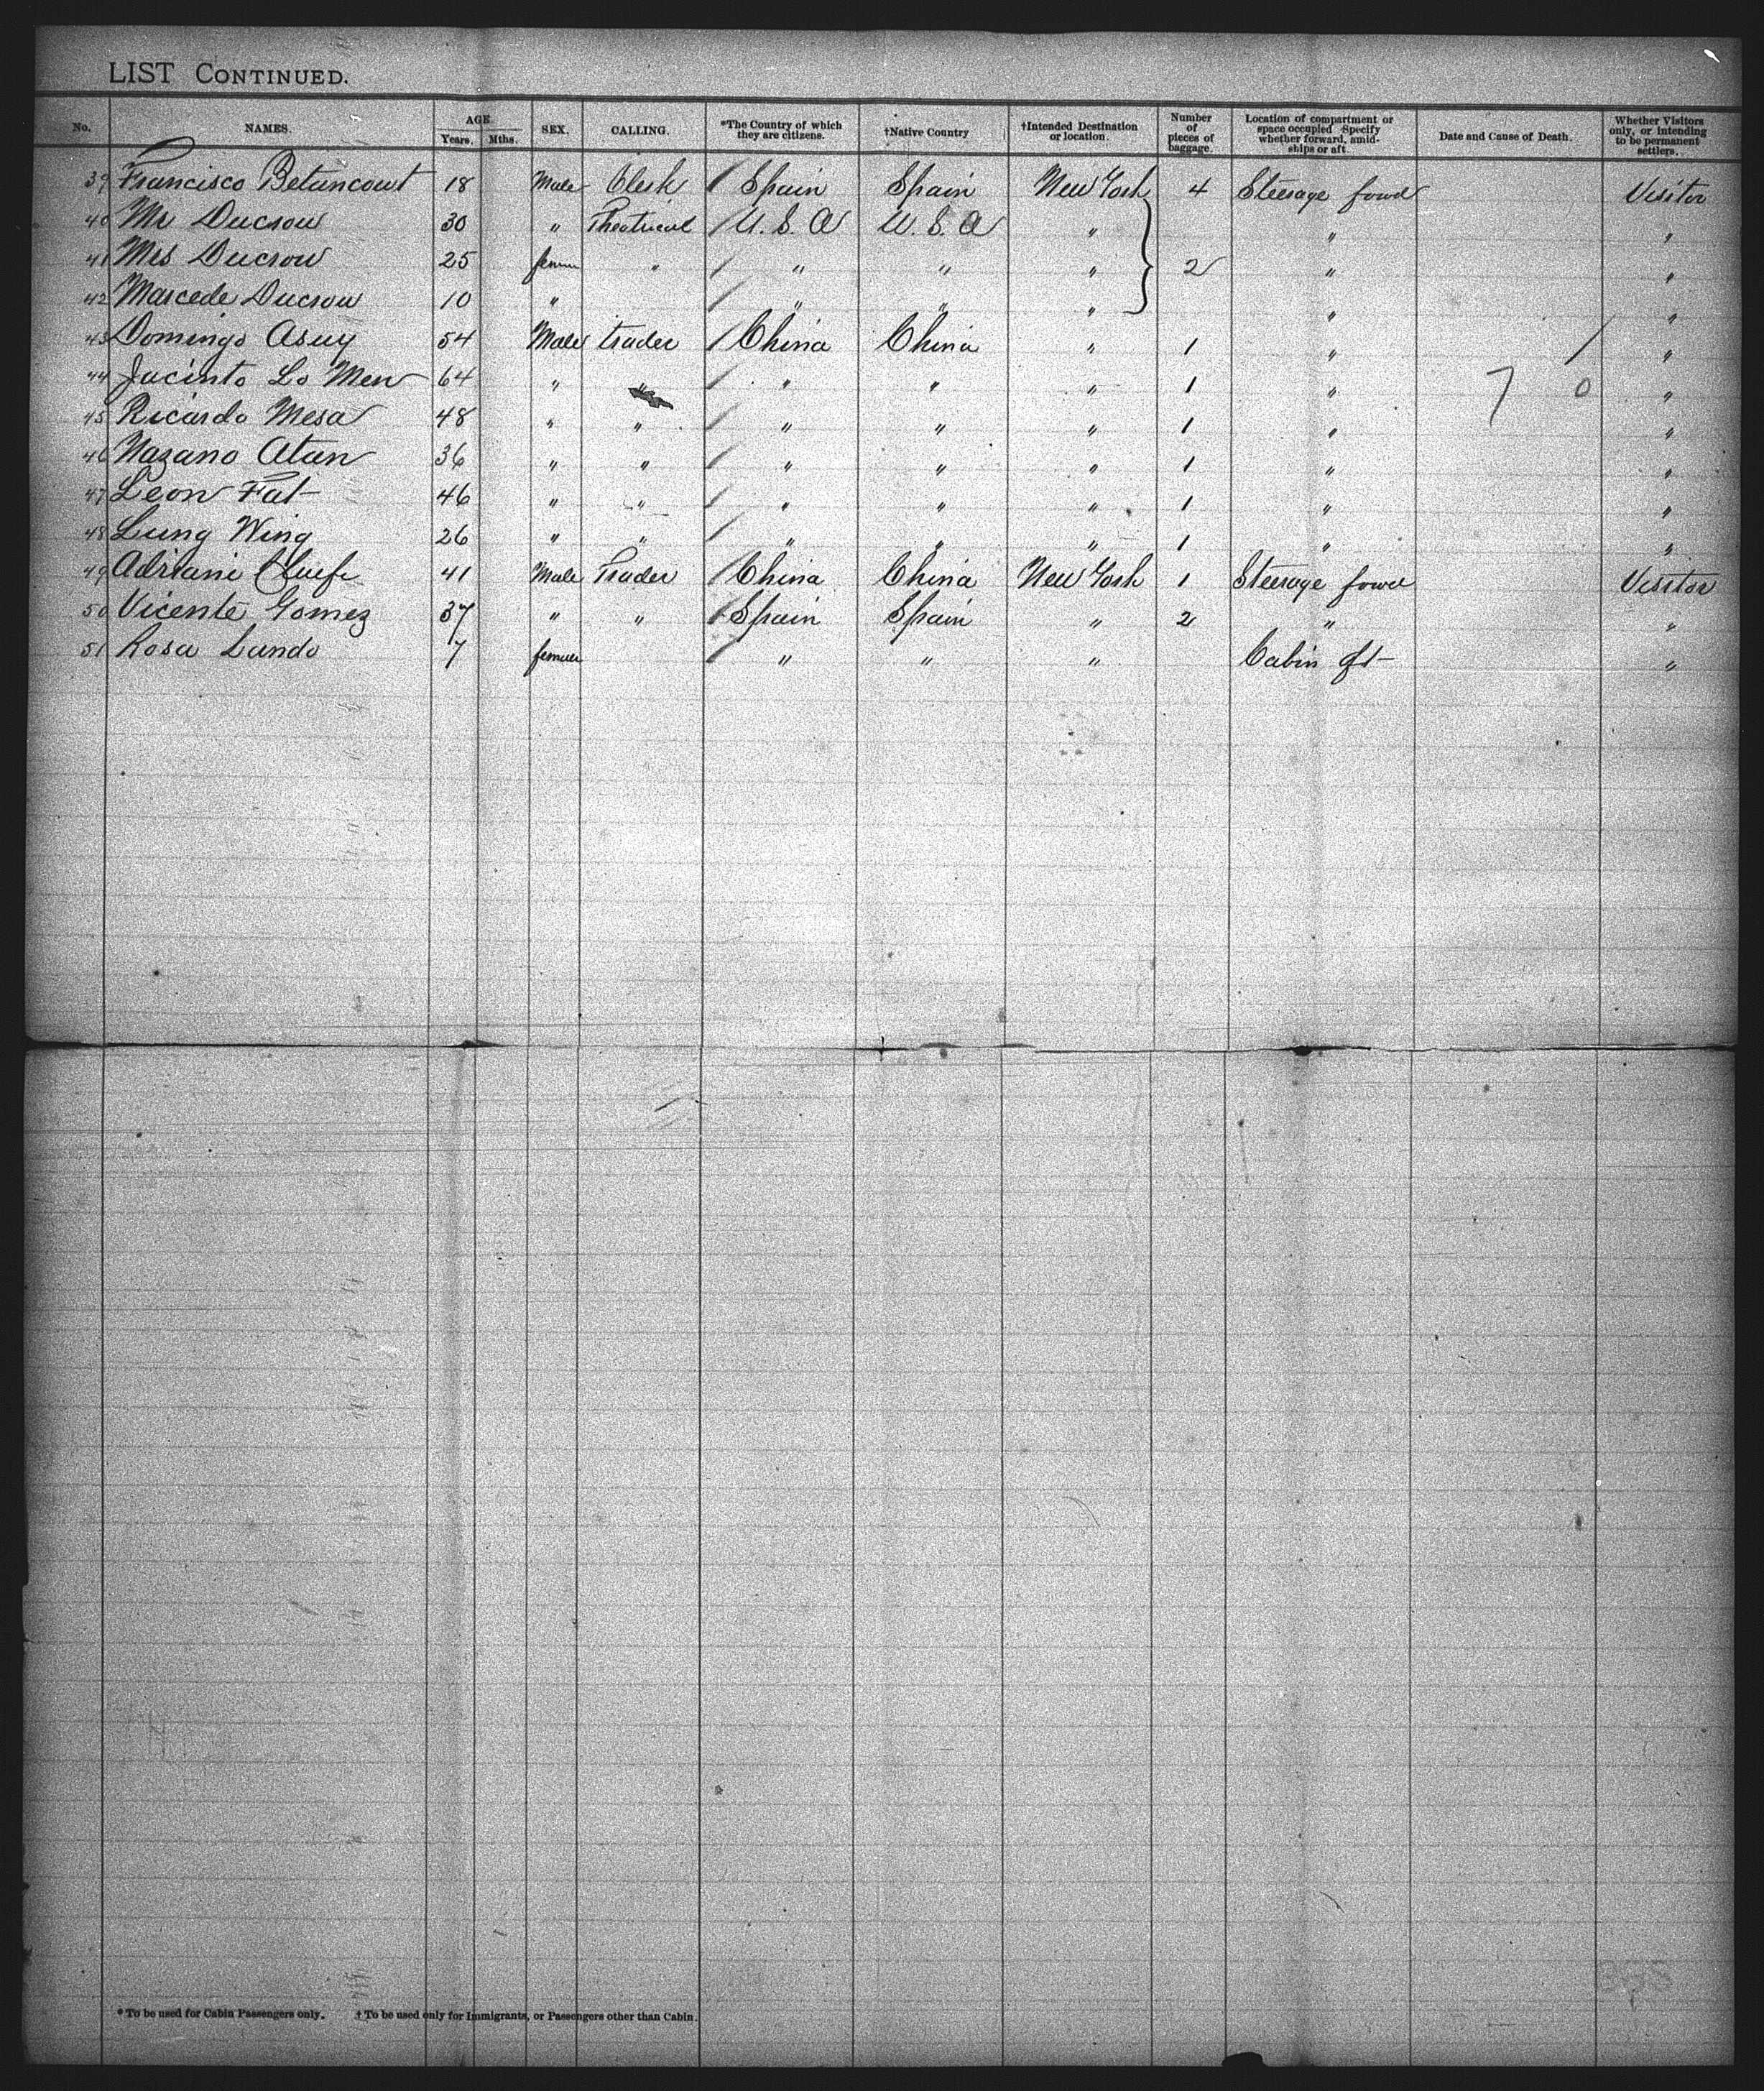 LIST CONTINUED.
No. NAMES. AGE. Years. Mths. SEX. CALLING. *The Country of which they are citizens. †Native Country †Intended Destination or location. Number of pieces of baggage. Location of compartment or space occupied Specify whether forward, amidships or aft Date and Cause of Death. Whether Visitors only, or intending to be permanent settlers.
39 Francisco Betuncourt 18 Male Clerk / Spain Spain New York 4 Steerage fowd Visitor
40 Mr Ducrow 30 " Theatrical / U. S. A U. S. A " " "
41 Mrs Ducrow 25 " / " " " 2 " "
42 Marcede Ducrow 10 " / " " " " "
43 Domingo Asuy 54 Male trader / China China " 1 " / "
44 Jacinto Lo Men 64 " " / " " " 1 " 7 0 "
45 Ricardo Mesa 48 " " / " " " 1 " "
46 Nazano Atan 36 " " / " " " 1 " "
47 Leon Fat 46 " " / " " " 1 " "
48 Lung Wing 26 " " / " " " 1 " "
49 Adriani 41 Male Trader / China China New York 1 Steerage fowd Visitor
50 Vicente Gomez 37 " " / Spain Spain " 2 " "
51 Rosa Lando 7 female / " " " Cabin aft "
* To be used for Cabin Passengers only. † To be used only for Immigrants, or Passengers other than Cabin.